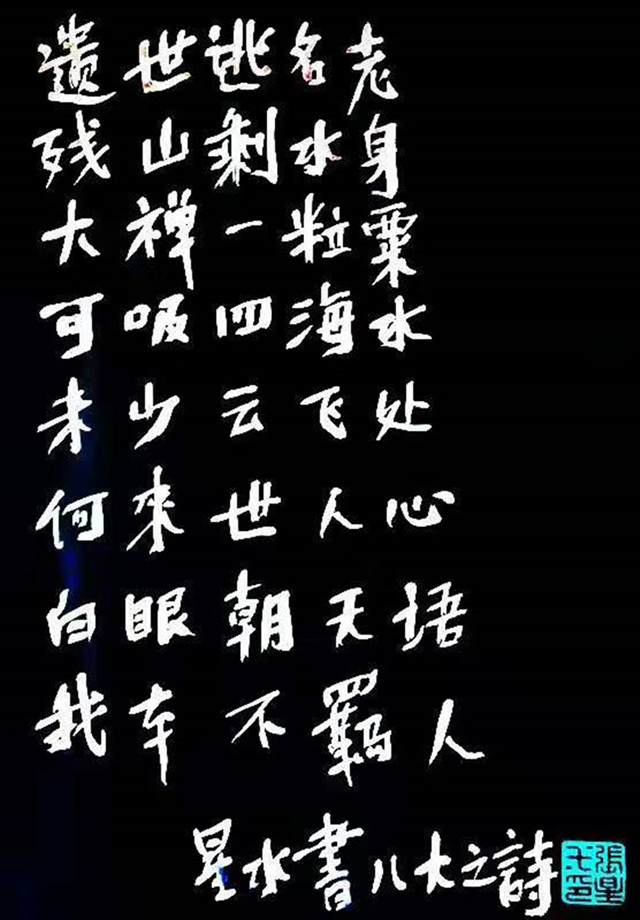 遺世逃名老
残山剩水身
大禅一粒粟
可吸四海水
未少云飞处
何來世人心
白眼朝天语
我本不羁人
星水書八大之詩